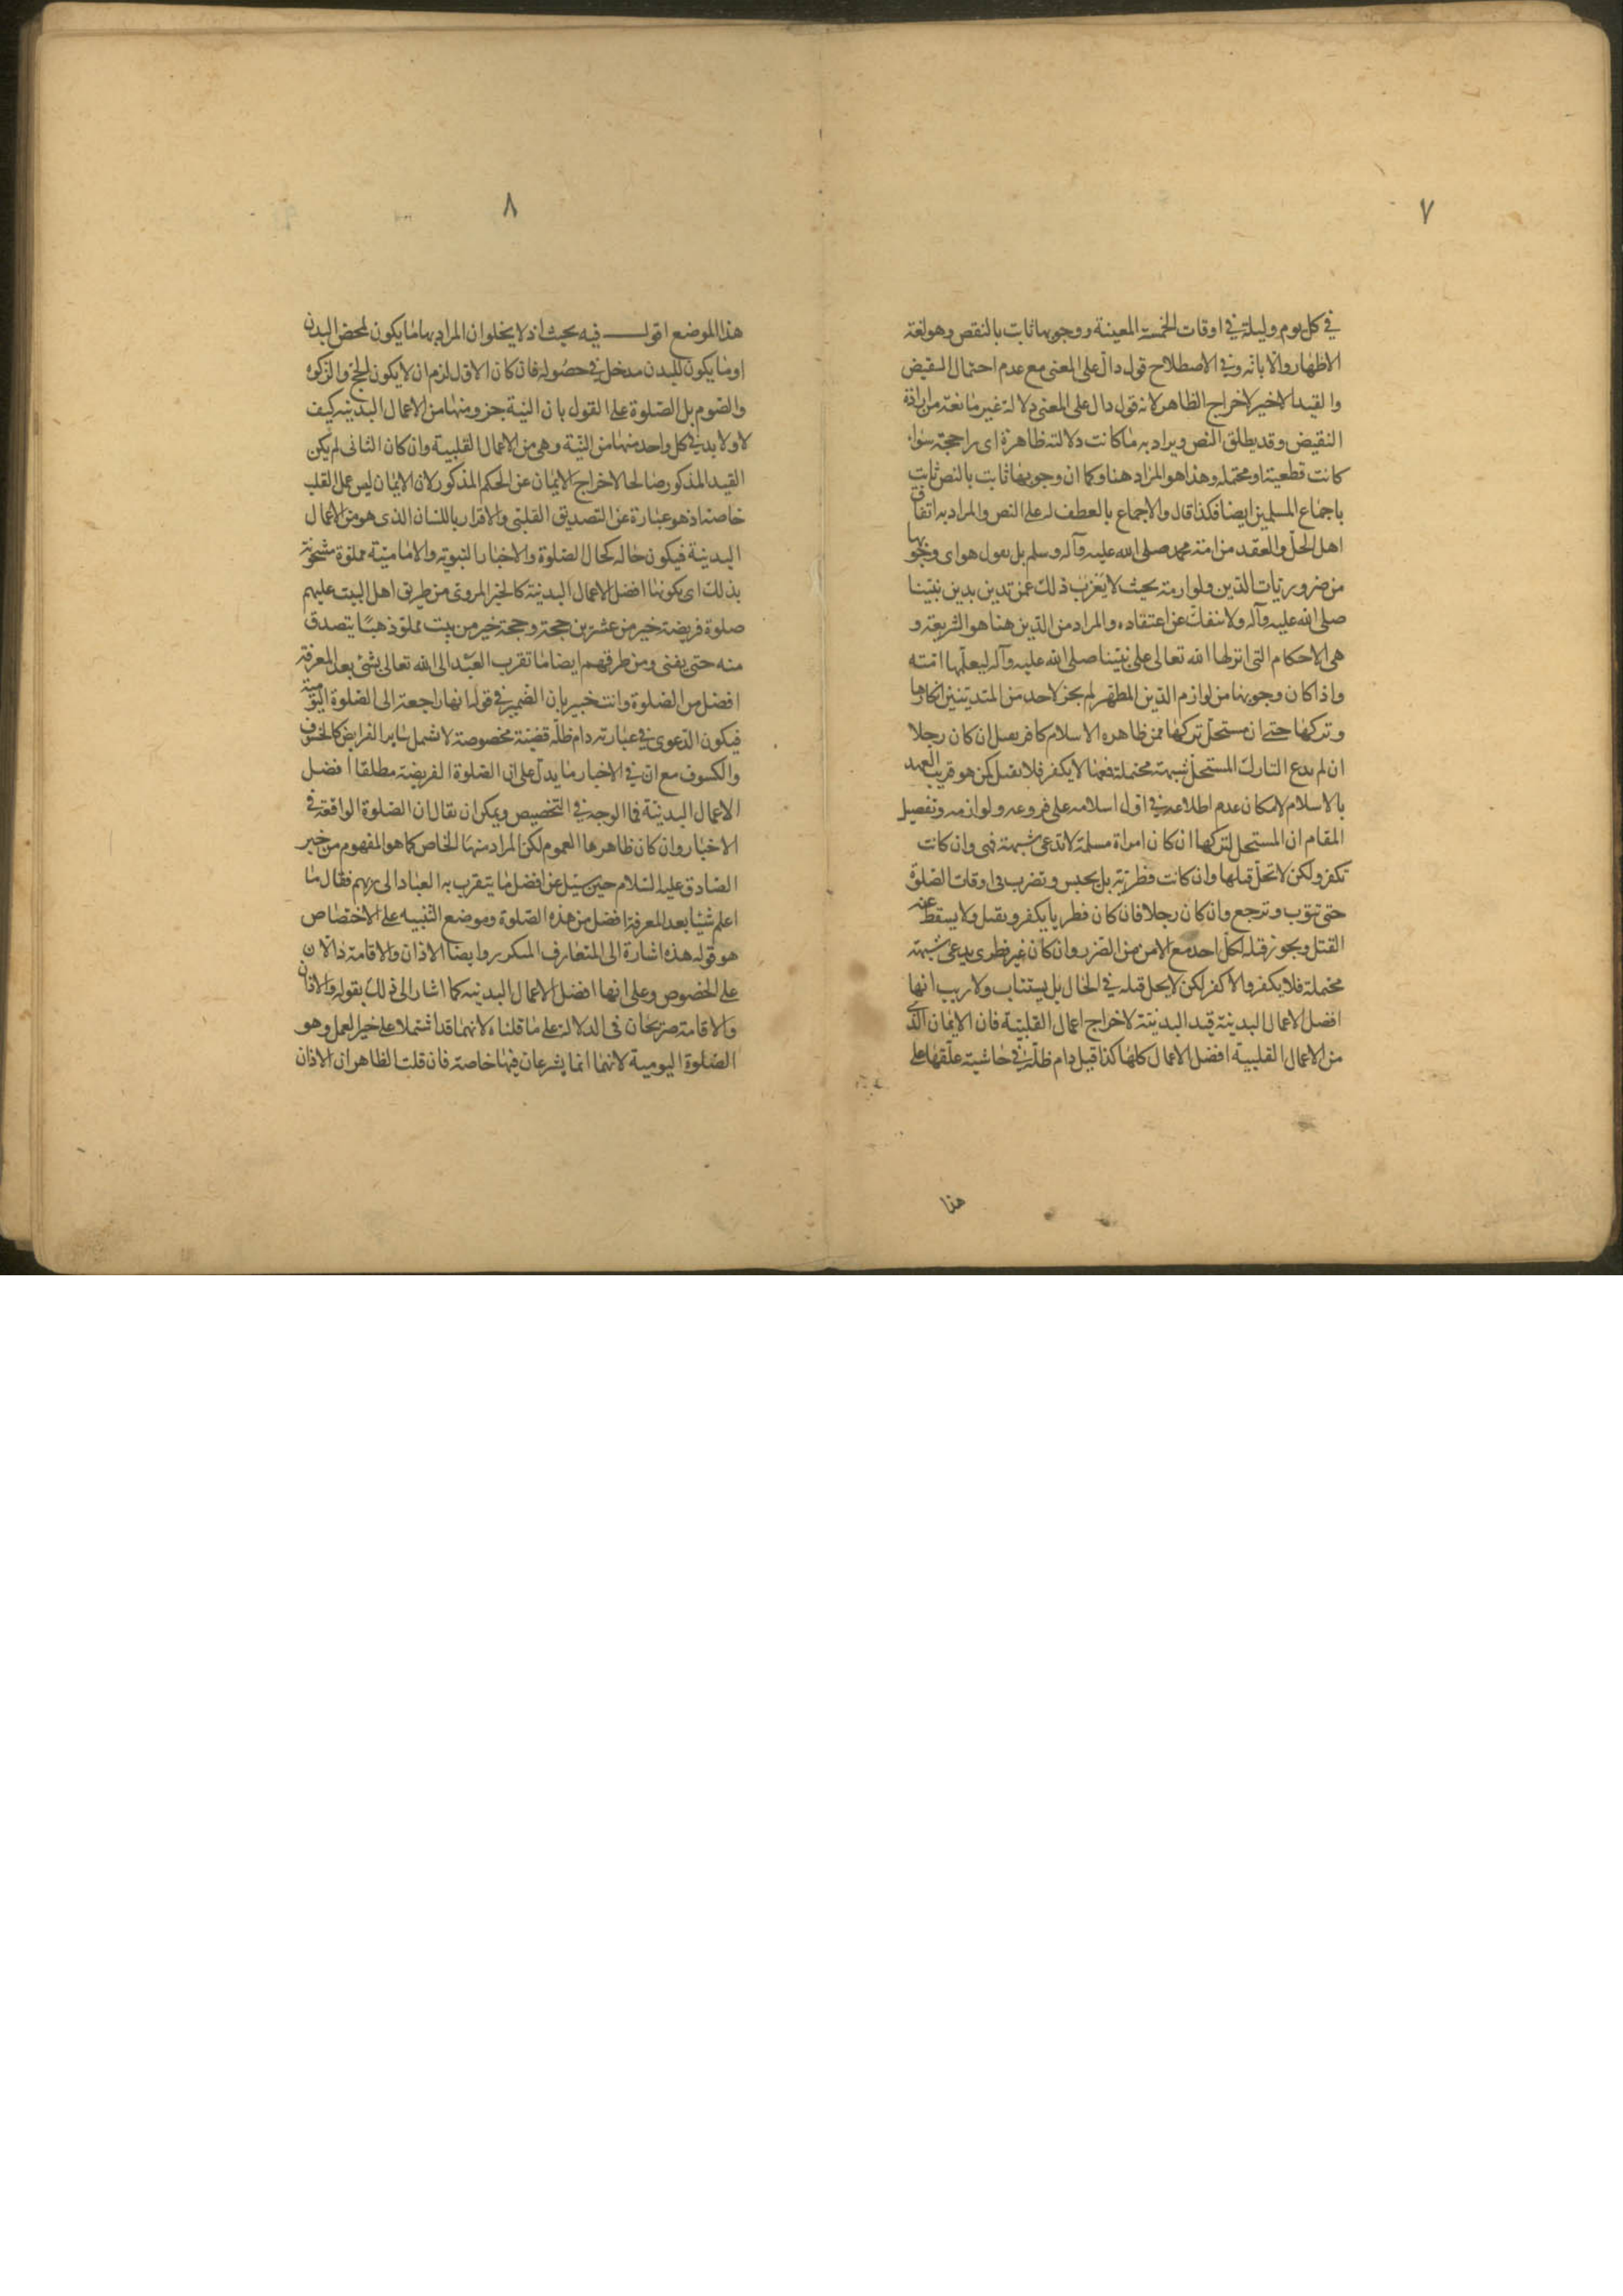 ٧
في كل يوم وليلة في اوقات الخمسة المعينة ووجوبها ثابت بالنقص وهو لغة
الاظهار والابانه وفي الاصطلاح قول دال على المعنى مع عدم احتمال النقيض
والقيد الاخير لاخراج الظاهر لانه قول دال على المعنى دلالة غير مانعة من ارادة
النقيض وقد يطلق النص ويراد به ما كانت دلالته ظاهرة اى راجحة سواء
كانت قطعية او محتملة وهذا هو المراد هنا وكما ان وجوبها ثابت بالنص ثابت
باجماع المسلمين ايضا فكذا قال والاجماع بالعطف له على النص والمراد به اتفاق
اهل الحل والعقد من امة محمد صلى الله عليه وآله وسلم بل نقول هو اى وجوبها
من ضروريات الدين ولوازمه بحيث لا يعزب ذلك عمن تدين بدين نبينا
صلى الله عليه وآله ولا ينفك عن اعتقاده والمراد من الدين هنا هو الشريعة و
هى الاحكام التى انزلها الله تعالى على نبينا صلى الله عليه وآله ليعلمها امته
واذا كان وجوبها من لوازم الدين المطهر لم يجز لاحد من المتدينين انكارها
وتركها حتى ان مستحل تركها ممن ظاهره الاسلام كافر يقتل ان كان رجلا
ان لم يدع التارك المستحل شبهة محتملة فمنا لا يكفر فلا يقتل كمن هو قريب العهد
بالاسلام لامكان عدم اطلاعه في اول اسلامه على فروعه ولوازمه وتفصيل
المقام ان المستحل لتركها ان كان امراة مسلمة لا تدعى شبهة فهى وان كانت
تكفر ولكن لا تحل قتلها وان كانت فطرية بل يحبس وتضرب في اوقات الصلوة
حتى تتوب وترجع وان كان رجلا فان كان فطريا يكفر ويقتل ولا يسقط عنه
القتل ويجوز قتله لكل احد مع الامن من الضرر وان كان غير فطرى يدعى شبهة
محتملة فلا يكفر والا كفر لكن لا يحل قتله في الحال بل يستتاب ولا ريب انها
افضل الاعمال البدنية قيد البدنية لاخراج اعمال القلبية فان الايمان الذى
من الاعمال القلبية افضل الاعمال كلها كذا قيل دام ظله في حاشية علقها على
هذا
٨
هذا الموضع اقول فيه بحث اذ لا يخلو ان المراد بها ما يكون لمحض البدن
او ما يكون للبدن مدخل في حصوله فان كان الاول لزم ان لا يكون الحج والزكوة
والصوم بل الصلوة على القول بان النية جزو منها من الاعمال البدنيه كيف
لا ولابد في كل واحد منها من النية وهى من الاعمال القلبية وان كان الثانى لم يكن
القيد المذكور صالحا لاخراج الايمان عن الحكم المذكور لان الايمان ليس عمل القلب
خاصة اذ هو عبارة عن التصديق القلبى والاقرار باللسان الذى هو من الاعمال
البدنية فيكون حاله كحال الصلوة والاخبار النبويه والامامية مملوة مشحونة
بذلك اى بكونها افضل الاعمال البدنية كالخبر المروى من طريق اهل البيت عليهم
صلوة فريضة خير من عشرين حجة وحجة خير من بيت مملو ذهبا يتصدق
منه حتى يفنى ومن طرقهم ايضا ما تقرب العبد الى الله تعالى بشئ بعد المعرفة
افضل من الصلوة وانت خبير بان الضمير في قوله انها راجعة الى الصلوة اليومية
فيكون الدعوى في عبارته دام ظله قضية مخصوصة لا تشمل ساير الفرايض كالخسوف
والكسوف مع ان في الاخبار ما يدل على ان الصلوة الفريضة مطلقا افضل
الاعمال البدنية فما الوجه في التخصيص ويمكن ان نقال ان الصلوة الواقعة في
الاخبار وان كان ظاهرها العموم لكن المراد منها الخاص كما هو المفهوم من خبر
الصادق عليه السلام حين سئل عن افضل ما يتقرب به العباد الى ربهم فقال ما
اعلم شيئا بعد المعرفة افضل من هذه الصلوة وموضع التنبيه على الاختصاص
هو قوله هذه اشارة الى المتعارف المتكرر وايضا الاذان والاقامة دالان
على الخصوص وعلى انها افضل الاعمال البدنيه كما اشار الى ذلك بقوله والاذان
والاقامة صريحان في الدلالة على ما قلناه لانهما قد اشتملا على خير العمل وهو
الصلوة اليومية لانهما انما يشرعان فيها خاصة فان قلت الظاهر ان الاذان